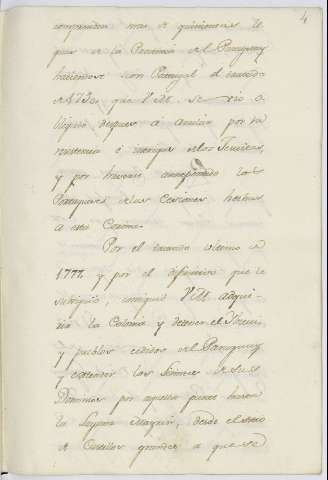 4
comprendia mas de quinientas le
guas de la Provincia del Paraguay
haciendose con Portugal el tratado
de 1750, que V.M. se vio o
bligado despues á anular por la
resistencia é intrigas de los Jesuitas,
y por haverse arrepentido los
Portugueses de las Cesiones hechas
á esta Corona.
Por el tratado ultimo de
1777 y por el difinitivo que le
subsiguió, consiguió V.M. adqui-
rir la Colonia y detener el
y pueblos cedidos del Paraguay
y extender los limites de sus
Dominios por aquella parte hasta
la Laguna desde el
de Castillos grandes a que se